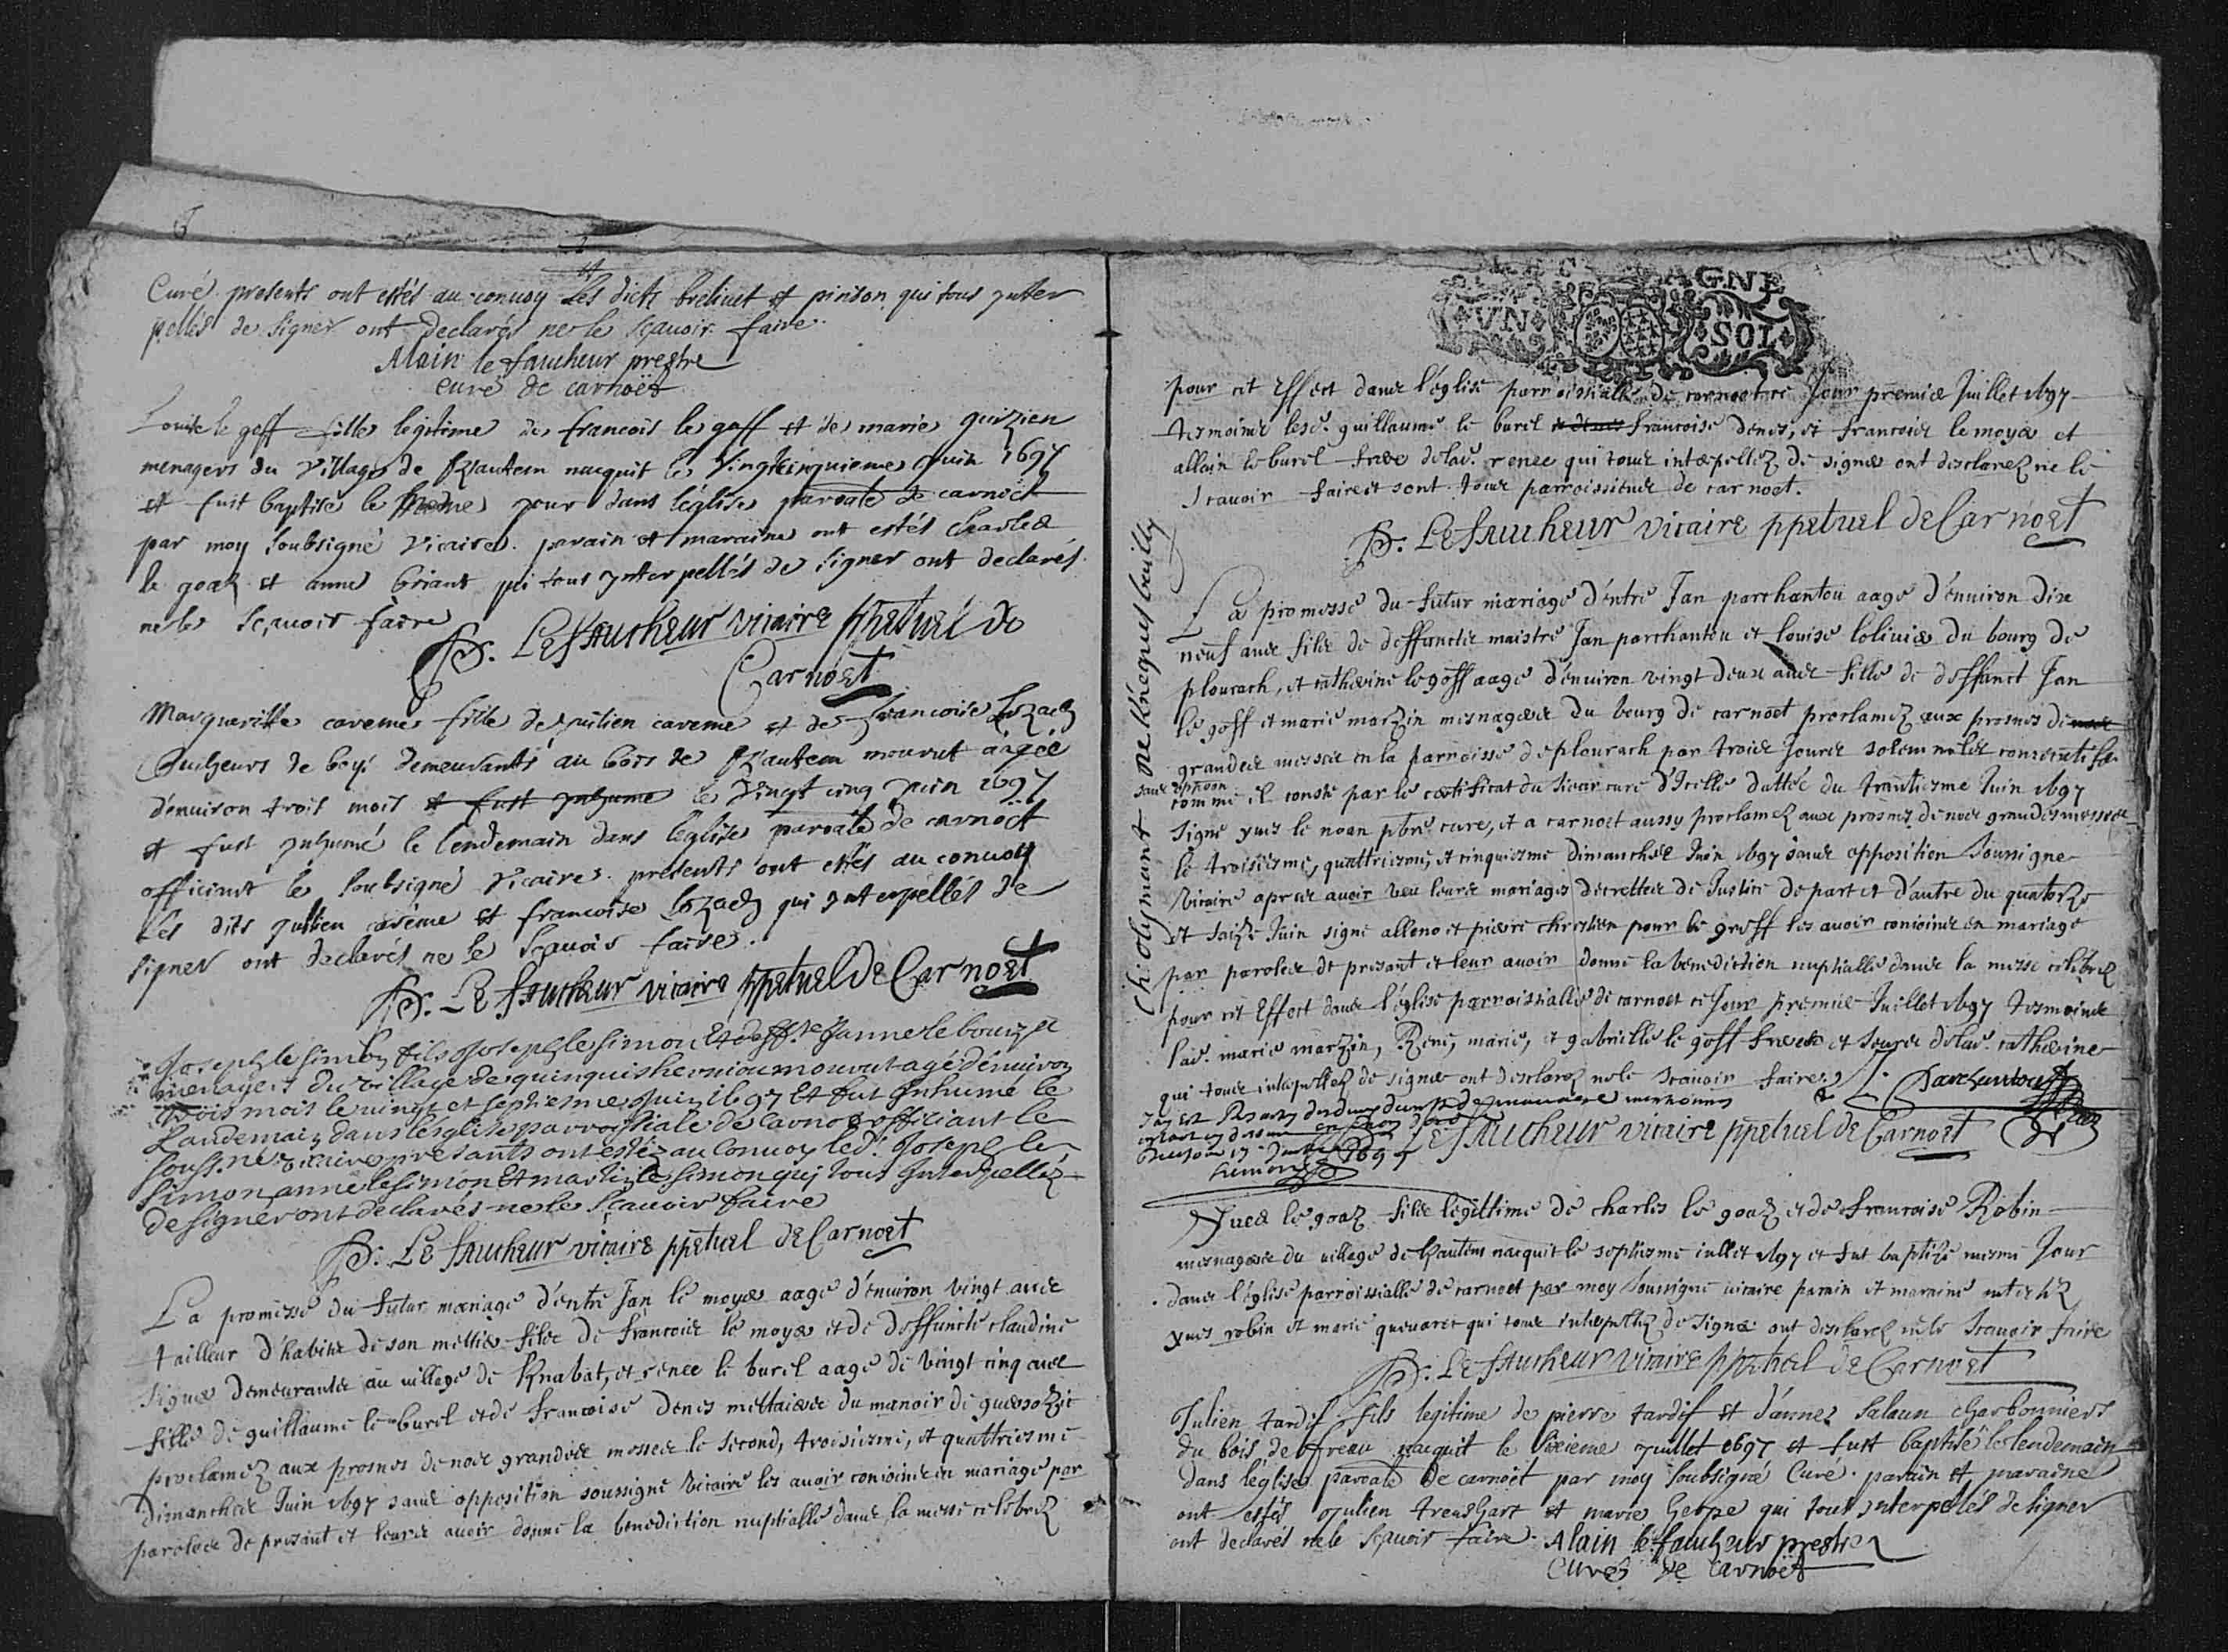 Curé presents ont estés au conuoy Les dicts brelivet et pinson qui tous jnter
pellés de signer ont declarés ne le sçauoir faire
Alain le faucheur prestre
curé de carnoët
Louise le goff fille legitime de francois le goff et de marie guizien
menagers du village de Kautem nacquit le vingtcinquieme juin 1697
et fust baptisé le mesme jour dans l'église paroale de carnoët
par moy soubsigné vicaire. parain et maraine ont estés charles
le goaz et anne briant qui tous jnterpellés de signer ont declarés
ne le sçauoir faire
LE faucheur vicaire ppetuel de
Carnoet
Marguerite careme fille de jullien careme et de francoise
demeurants au bois de Kautem mourut aagée
d'enuiron trois mois et fust jnhumé le vingt cinq juin 1697
et fust jnhumé le lendemain dans l'église paroale de carnoët
officiant le soubsigné vicaire. presents ont estés au conuoy
Les dits jullien carème et francoise qui jnterpellés de
signer ont declarés ne le sçauoir faire.
LE faucheur vicaire ppetuel de Carnoet
Joseph le simon fils Joseph le simon et deff.te Janne le
menagers du village de quinquis mourut agé d'enuiron
trois mois le vingt et septiesme Juin 1697 Et fut Inhumé le
Landemain dans l'esglise parroissiale de Carnoet officiant le
souss.né vicaire presants ont estéz au Conuoy led.t Joseph le
simon anne le simon Et martin le simon quj tous Interpelléz
de signer ont declarés ne le scauoir faire
LE faucheur vicaire ppetuel de Carnoet
La promesse du futur mariage d'entre Jan le moyer aagé d'enuiron vingt ans
tailleur d'habits de son mettier fils de francois le moyer et de deffuncte claudine
demeurants au uillage de Knabat, et renee le burel aagé de vingt cinq ans
fille de guillaume le burel et de francoise denes mettaiers du manoir de
proclamez aux prosnes de nos grandes messes le second, troisiesme, et quattriesme
dimanches Juin 1697 sans opposition soussigné vicaire les auoir conioints en mariage par
paroles de presant et leurs auoir donné la benediction nuptialle dans la messe celebrez
AGNE
VN SOL
pour cet Effect dans l'église parroissialle de carnoet ce Jour premier Juillet 1697
tesmoins lesd. guillaume le burel francoise denes, et francois le moyer et
allain le burel frere delad. renee qui tous interpellez de signer ont desclarez ne le
scauoir faire et sont tous parroissiens de carnoet.
LE faucheur vicaire ppetuel de Carnoet
La promesse du futur mariage d'entre Jan parchantou aagé d'enuiron dix
neuf ans fils de deffuncts maistre Jan parchantou et louise lolivier du bourg de
plourach, et catherine le goff aagé d'enuiron vingt deux ans fille de deffunct Jan
le goff et marie marzin mesnagers du bourg de carnoet proclamez aux prosnes de
grandes messes en la parroisse de plourach par trois Jours solemnels
comme il conste par le certificat du sieur curé d'Icelle dattée du trantiesme Juin 1697
signé yues le noan pbre curé, et a carnoet aussy proclamez aux prosnes de nos grandes messes
le troisiesme, quattriesme, et cinquiesme dimanches Juin 1697 sans opposition soussigné
vicaire apres auoir veu leurs mariages decrettés de Justice de part et d'autre du quatorze
et saize Juin signé alleno et pierre chrestien pour le greff les auoir conioints en mariage
par paroles de presant et leur auoir donné la benediction nuptialle dans la messe celebrez
pour cet Effect dans l'église parroissialle de carnoet ce Jour premier Juillet 1697 tesmoins
lad. marie marzin, Rene, marie, et gabrielle le goff freres et soeurs delad. catherine
qui tous interpellez de signer ont desclarez ne le scauoir faire J. Parchantou
LE faucheur vicaire ppetuel de Carnoet
Yues le goaz fils legittime de charles le goaz et de francoise Robin
mesnagers du uillage de Kautem nacquit le septiesme iuillet 1697 et fut baptizé mesme Jour
dans l'église parroissialle de carnoet par moy soussigné vicaire parain et maraine ont estez
yues robin et marie qui tous interpellez de signer ont desclarez ne le scauoir faire
LE faucheur vicaire ppetuel de Carnoet
Julien tardif fils legitime de pierre tardif et d'anne Salaun charbonniers
du bois de freau nacquit le sixieme juillet 1697 et fust baptisé le lendemain
dans l'église paroale de carnoët par moy soubsigné Curé. parain et maraine
ont estés julien et marie qui tous jnterpelés de signer
ont declarés ne le sçauoir faire. Alain le faucheur prestre
curé de carnoët